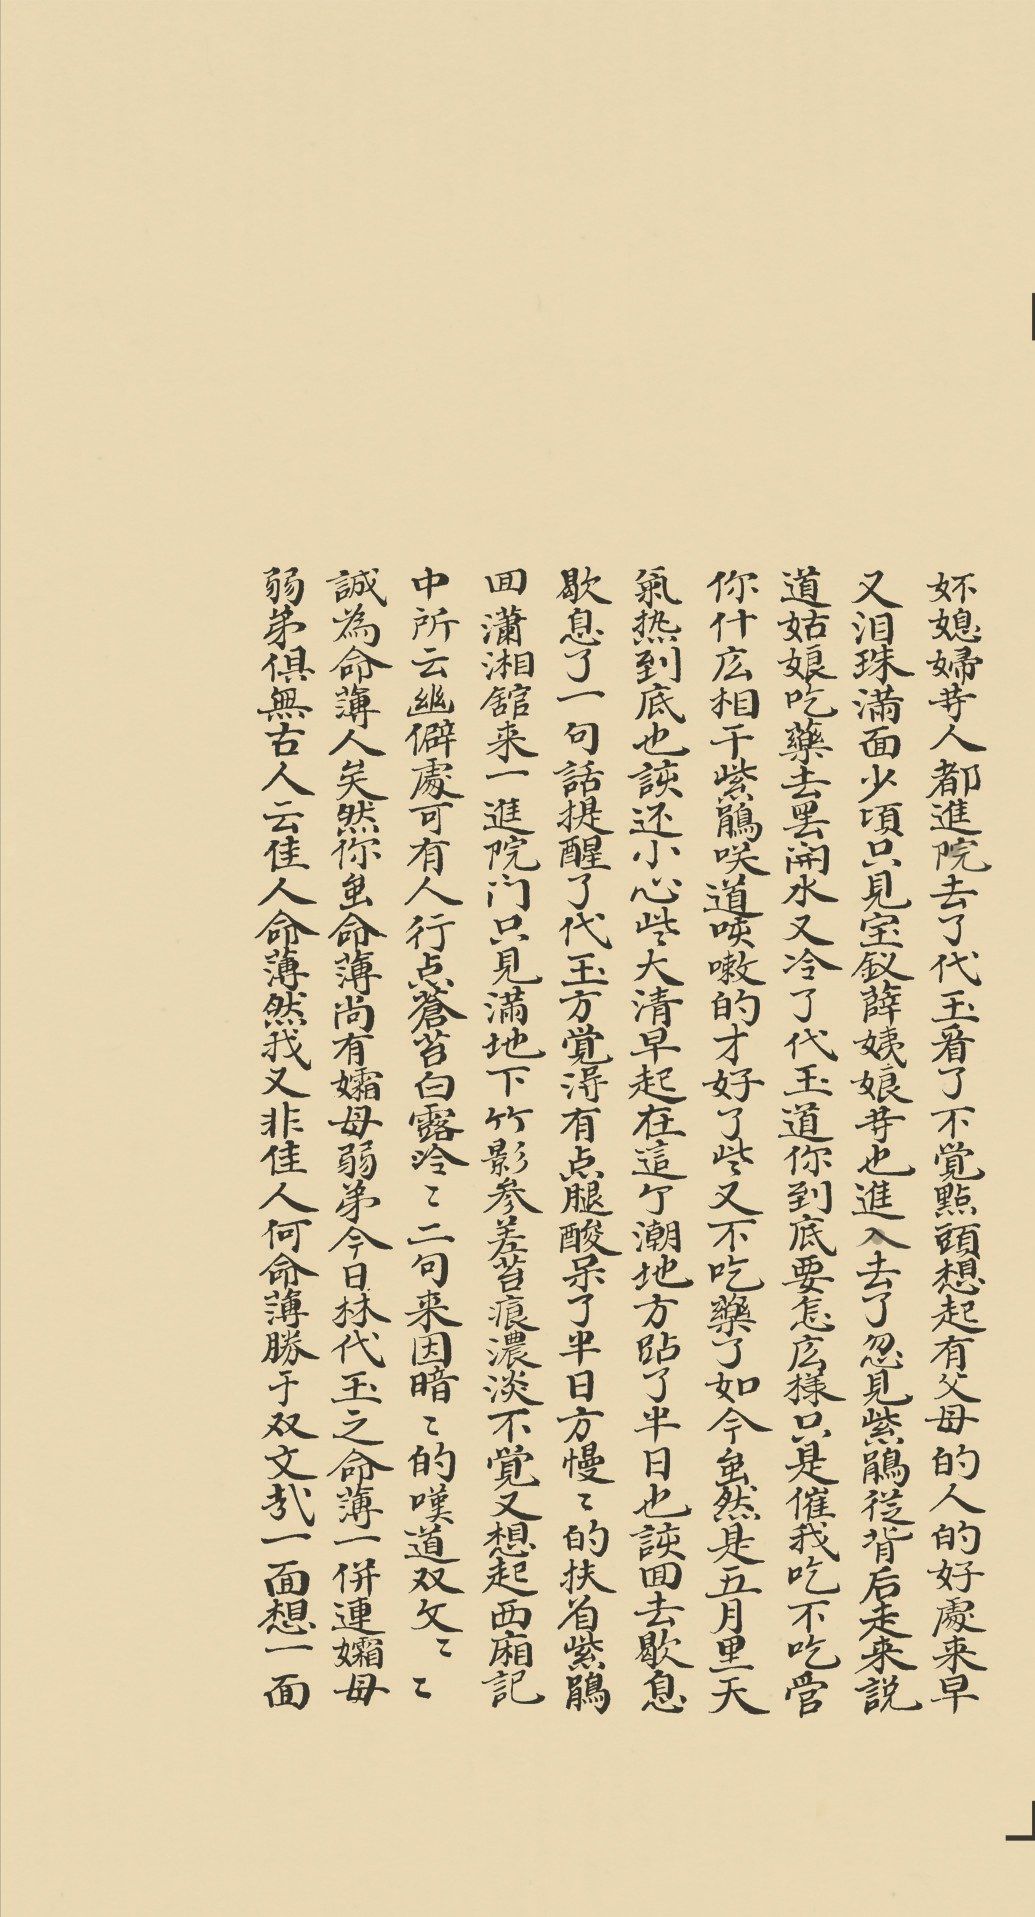 妚媳婦䒭人都進院去了代玉看了不覚點頭想起有父母的人的好處来早
又泪珠滿面少頃只見宝釵薛姨娘䒭也進入去了忽見紫鵑從背后走来説
道姑娘吃藥去罢開水又冷了代玉道你到底要怎庅樣只是催我吃不吃管
你什庅相干紫鵑咲道咳嗽的才好了些又不吃藥了如今虽然是五月里天
氣热到底也該还小心些大清早起在這个潮地方跕了半日也該囬去歇息
歇息了一句話提醒了代玉方覚淂有点腿酸呆了半日方慢〻的扶着紫鵑
囬瀟湘舘来一進院门只見滿地下竹影参差苔痕濃淡不覚又想起西廂記
中所云幽僻處可有人行点蒼苔白露泠〻二句来因暗〻的嘆道双文〻〻
誠為命薄人矣然你虽命薄尚有孀母弱弟今日林代玉之命薄一併連孀母
弱弟俱無古人云佳人命薄然我又非佳人何命薄勝于双文㦲一面想一面